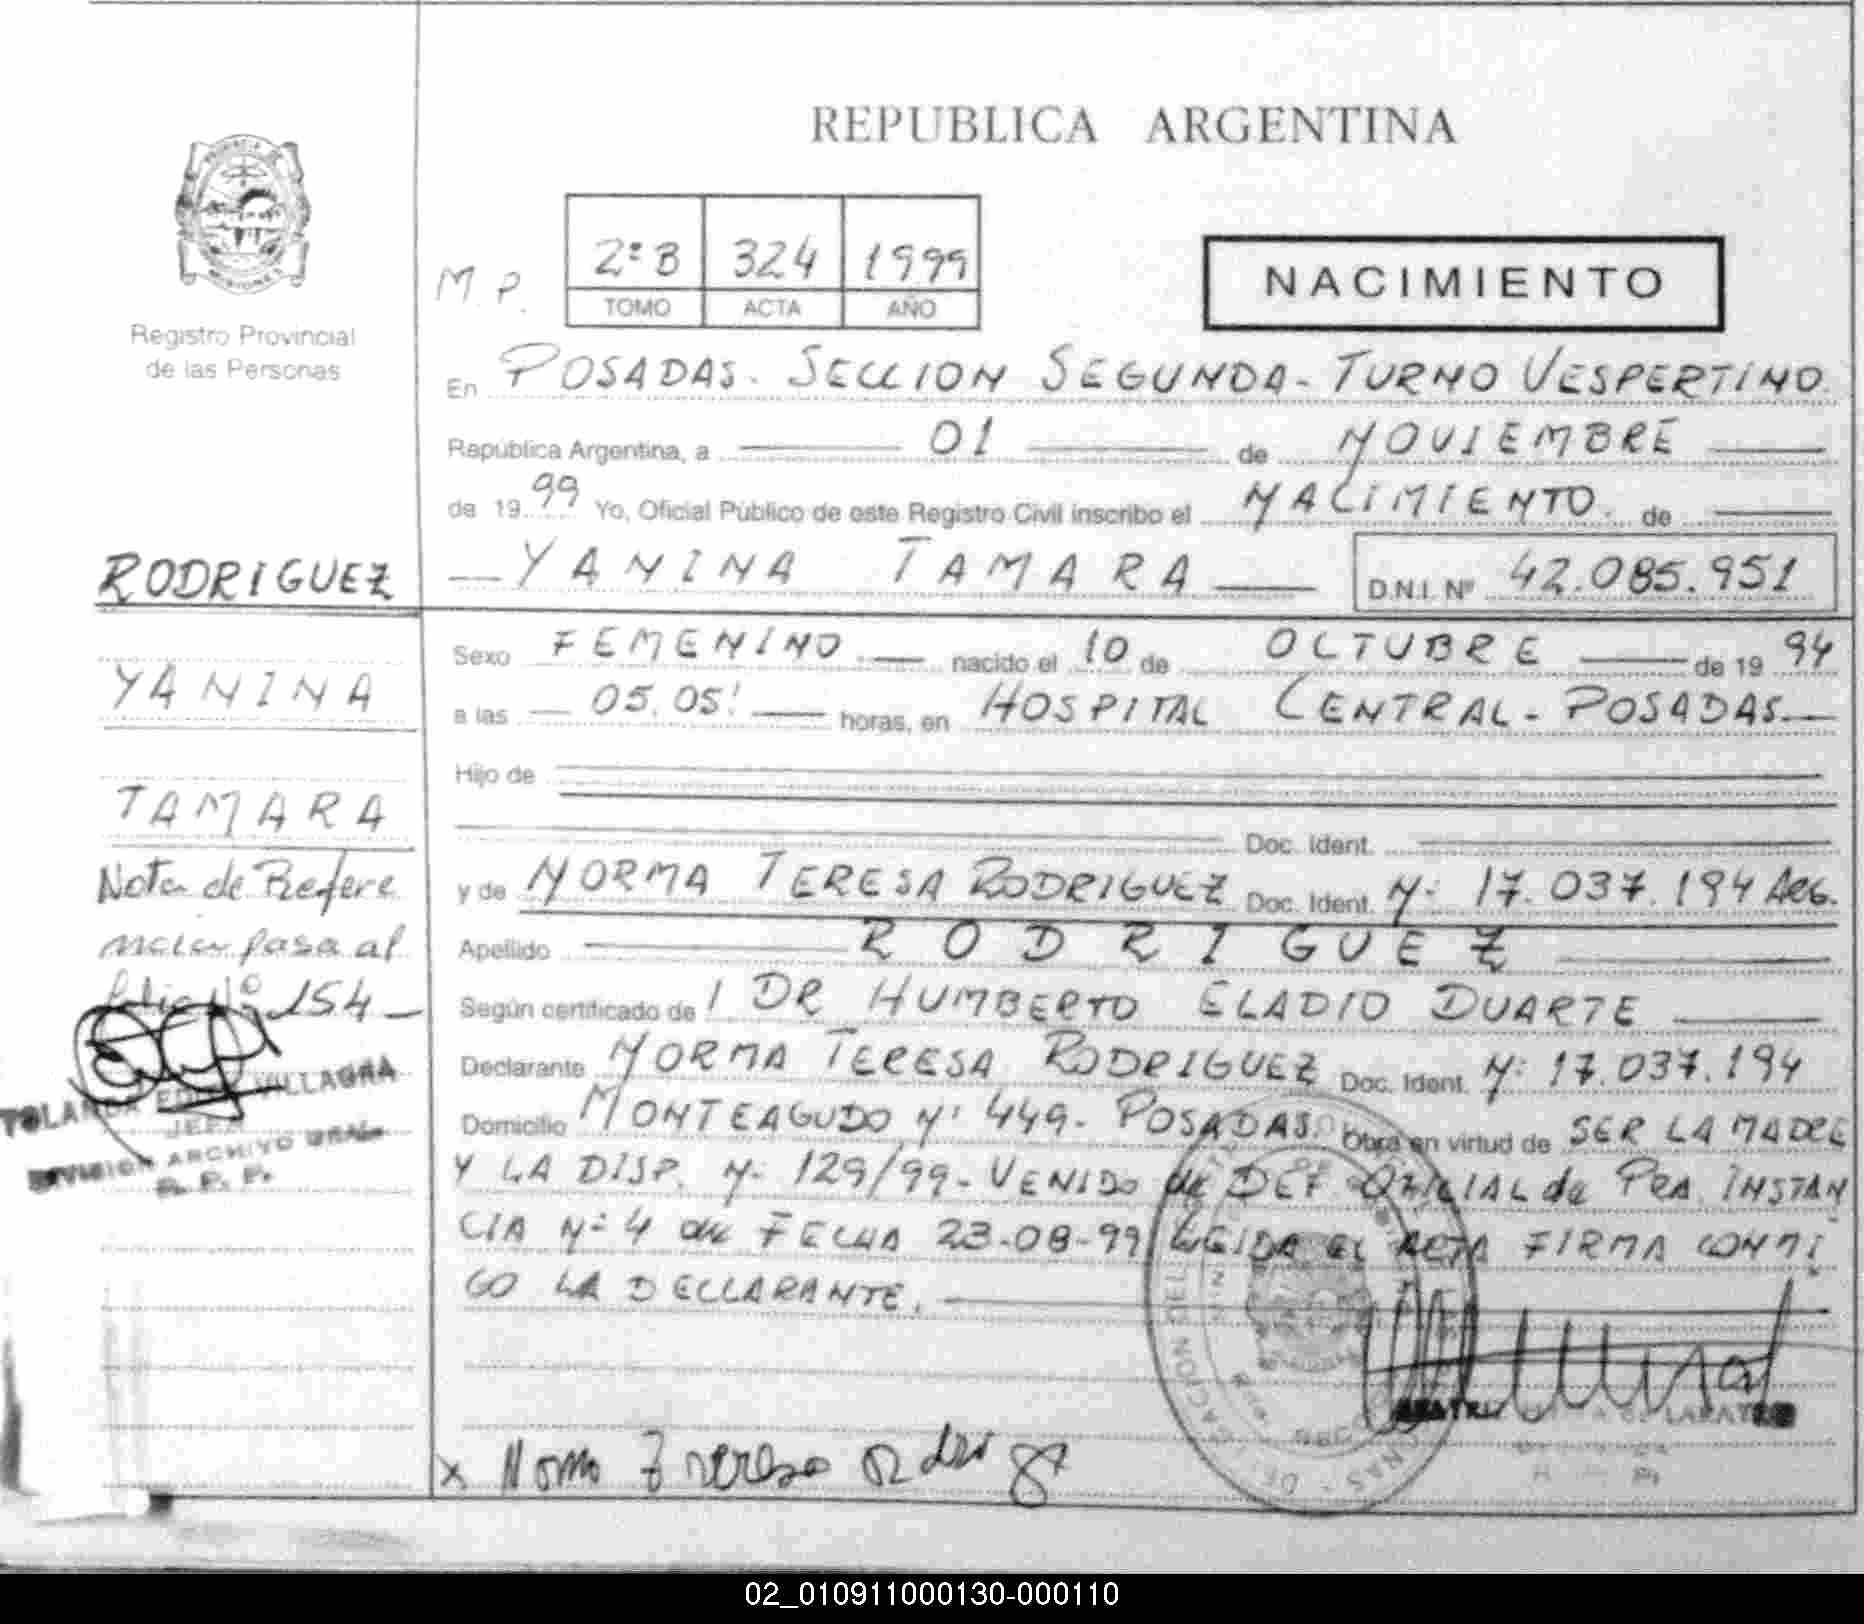 REPUBLICA ARGENTINA
PROVINCIA DE
MISIONES
Registro Provincial
de las Personas
M. P.
2º B 324 1999
TOMO ACTA AÑO
NACIMIENTO
En POSADAS. SECCION SEGUNDA - TURNO VESPERTINO
República Argentina, a 01 de NOVIEMBRE
de 19 99 Yo, Oficial Público de este Registro Civil inscribo el NACIMIENTO. de
YANINA TAMARA D.N.I. Nº 42.085.951
RODRIGUEZ
YANINA
TAMARA
Nota de Refere
ncia pasa al
folio Nº 154
VILLAGRA
JEFA
DIVISION ARCHIVO GRAL.
R. P. P.
Sexo FEMENINO nacido el 10 de OCTUBRE de 19 94
a las 05.05' horas, en HOSPITAL CENTRAL - POSADAS
Hijo de
Doc. Ident.
y de NORMA TERESA RODRIGUEZ Doc. Ident. Nº 17.037.194 ARG.
Apellido RODRIGUEZ
Según certificado de DR HUMBERTO ELADIO DUARTE
Declarante NORMA TERESA RODRIGUEZ Doc. Ident. Nº 17.037.194
Domicilio MONTEAGUDO Nº 449 - POSADAS Obra en virtud de SER LA MADRE
Y LA DISP. Nº 129/99 - VENIDO de DEF. OFICIAL de PRA. INSTAN
CIA Nº 4 de FECHA 23-08-99 LEIDA EL ACTA FIRMA CONMI
GO LA DECLARANTE.
x
02_010911000130-000110